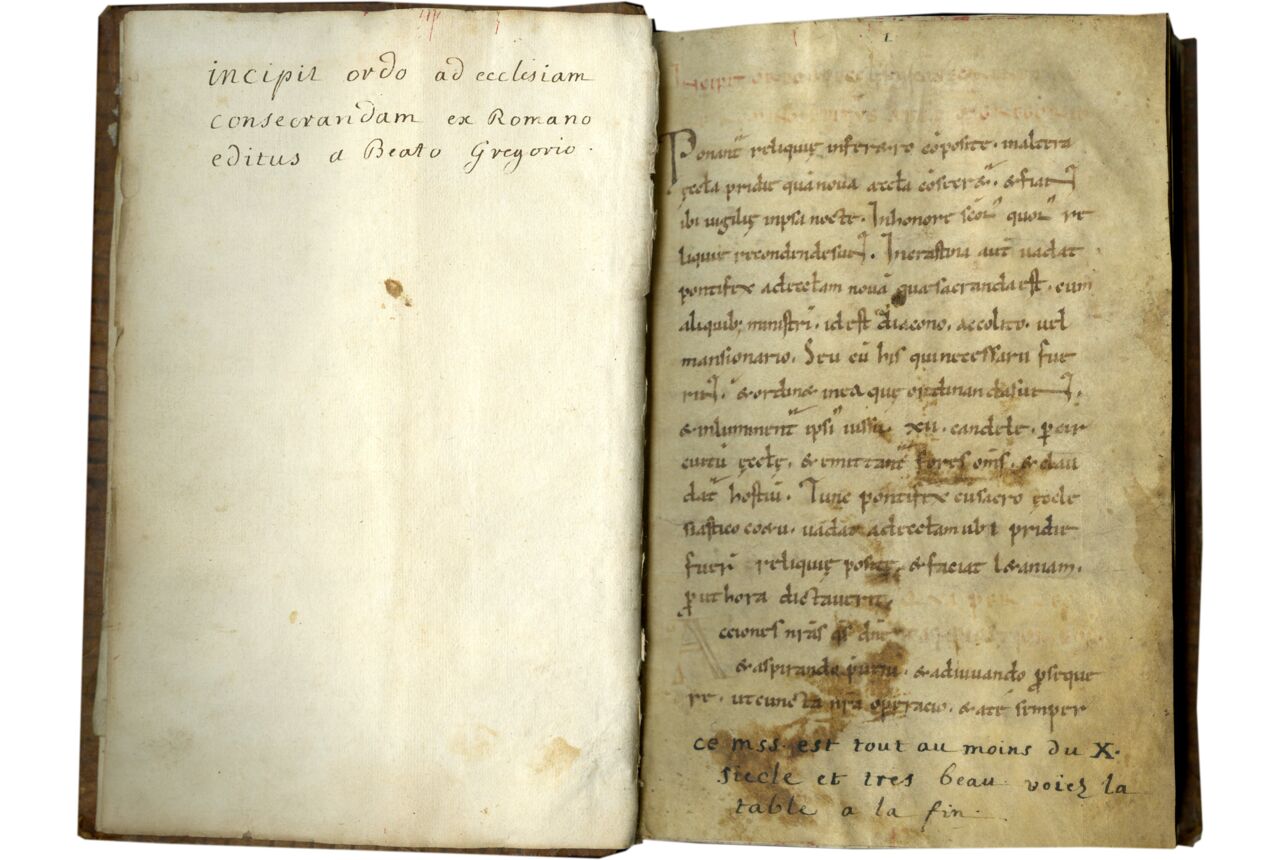 incipit ordo ad ecclesiam
consecrandam ex Romano
editus a Beato Gregorio.
1
Incipit ordo
Ponant reliquię in feretro cōposite. in altera
ęccła pridie quā nova ęccła cōsecret. & fiat
ibi vigilię in ipsa nocte. In honore scōr quor re
liquie recondende sunt. In crastina aut vadat
pontifex ad eccłam novā que sacranda est. cum
aliquib; ministri. id est diacono. accolito. vel
mansionario. Seu cū his qui necessarii fue
rint. & ordinet in ea quę ordinanda sunt.
& inluminent ipsi iussu. xii. candele. p cir
cuitū ęccłę. & emittant fores om̄s. & clau
dat hostiū. Tunc pontifex cū sacro ęccle
siastico coetu. vadat ad eccłam ubi pridie
fuer reliquię posite. & faciat letaniam.
put hora dictaverit.
Acciones nrās qs dnē
& aspirando & adiuvando pseque
re. ut cuncta nrā operacio. & a te semper
ce mss. est tout au moins du X.
siecle et tres beau voiez la
table a la fin.